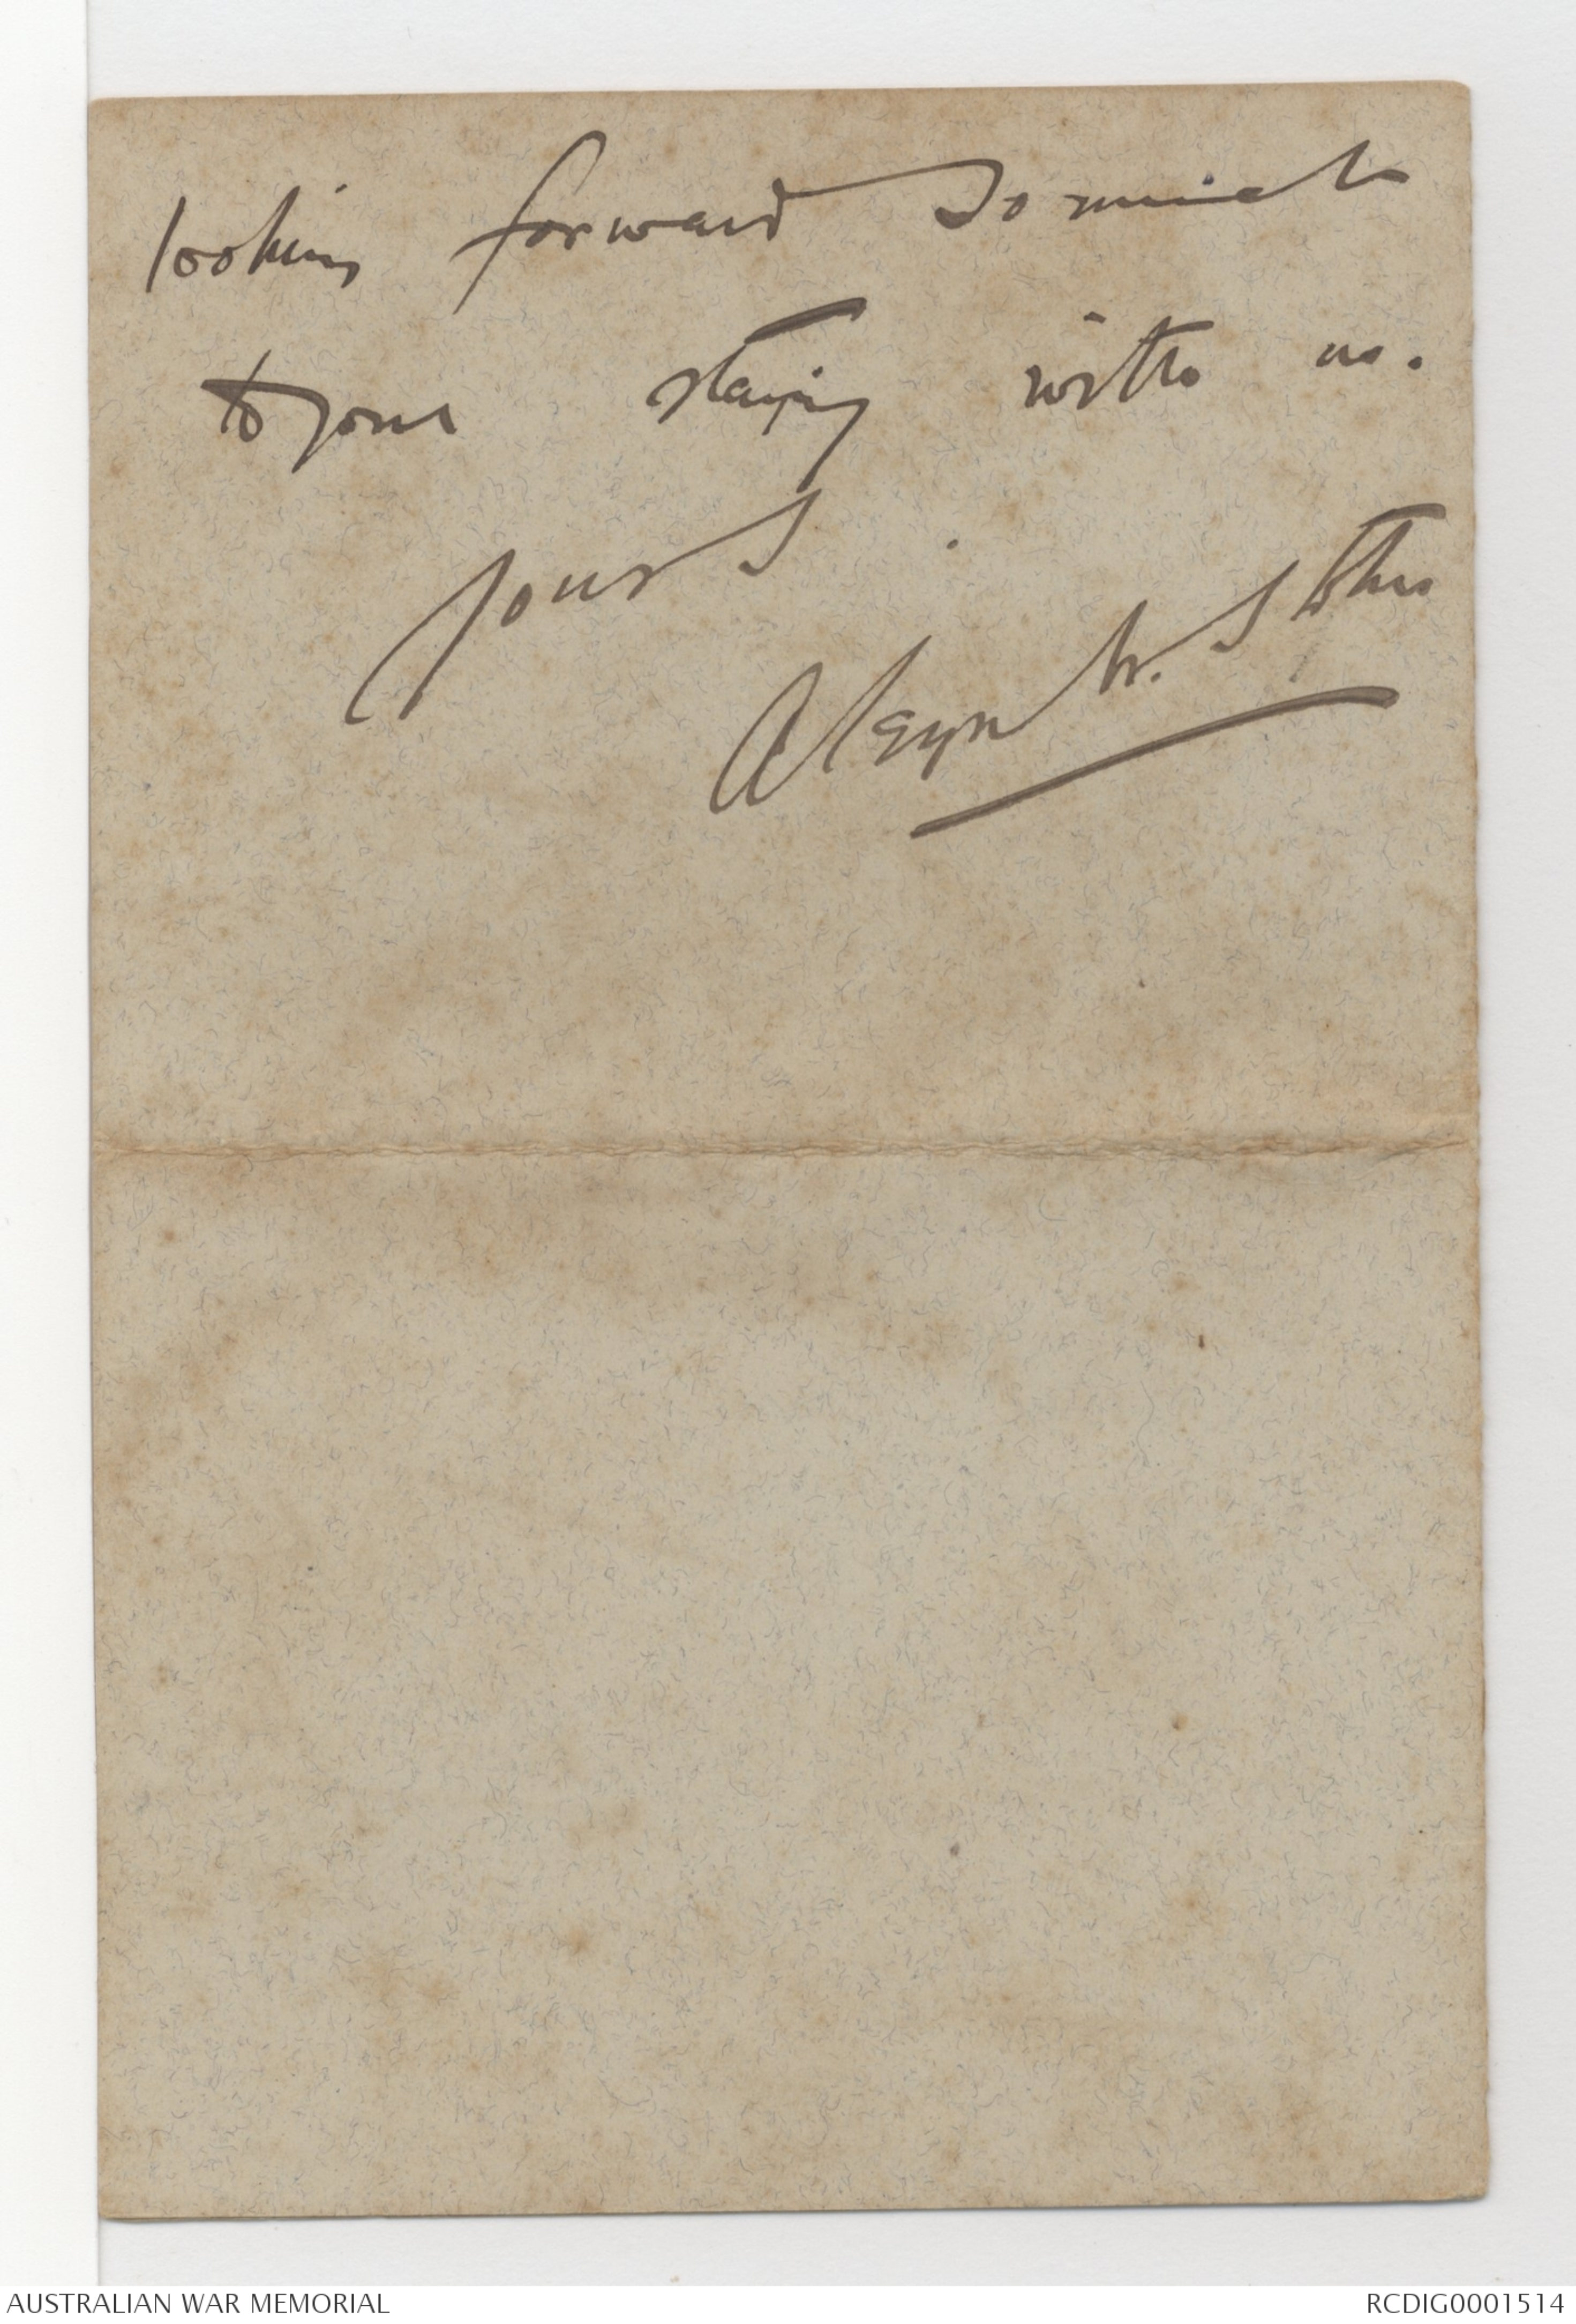 looking forward so much
to your staying with us.
Yours
Aleyn
AUSTRALIAN WAR MEMORIAL
RCDIG0001514